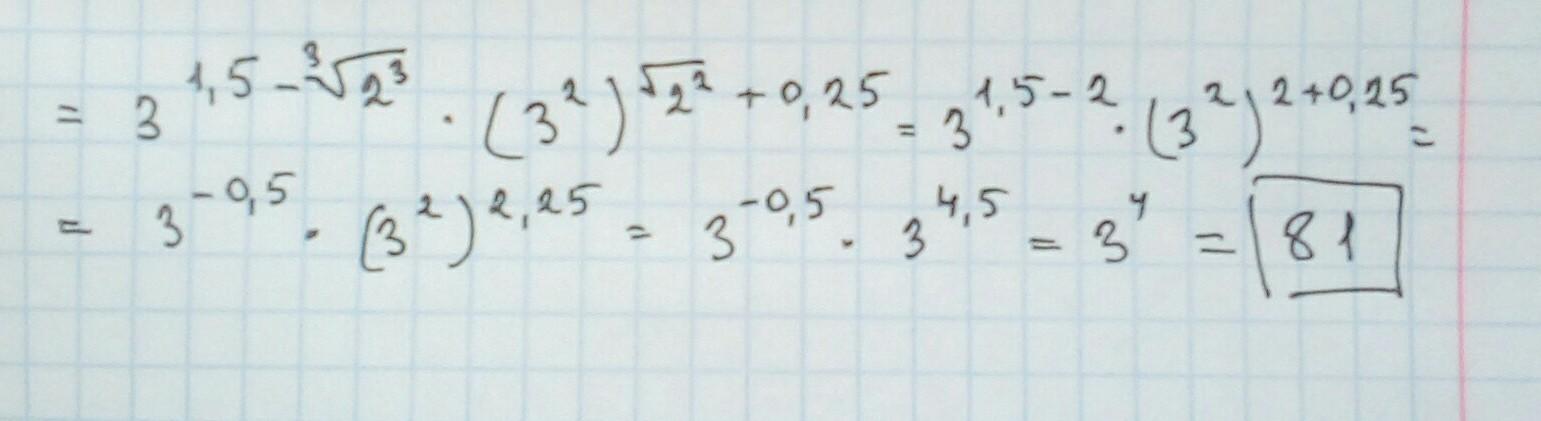 = 3^{1,5-∛(2³)} · (3²)^{√(2²)+0,25} = 3^{1,5-2} · (3²)^{2+0,25} =
= 3^{-0,5} · (3²)^{2,25} = 3^{-0,5} · 3^{4,5} = 3⁴ = 81